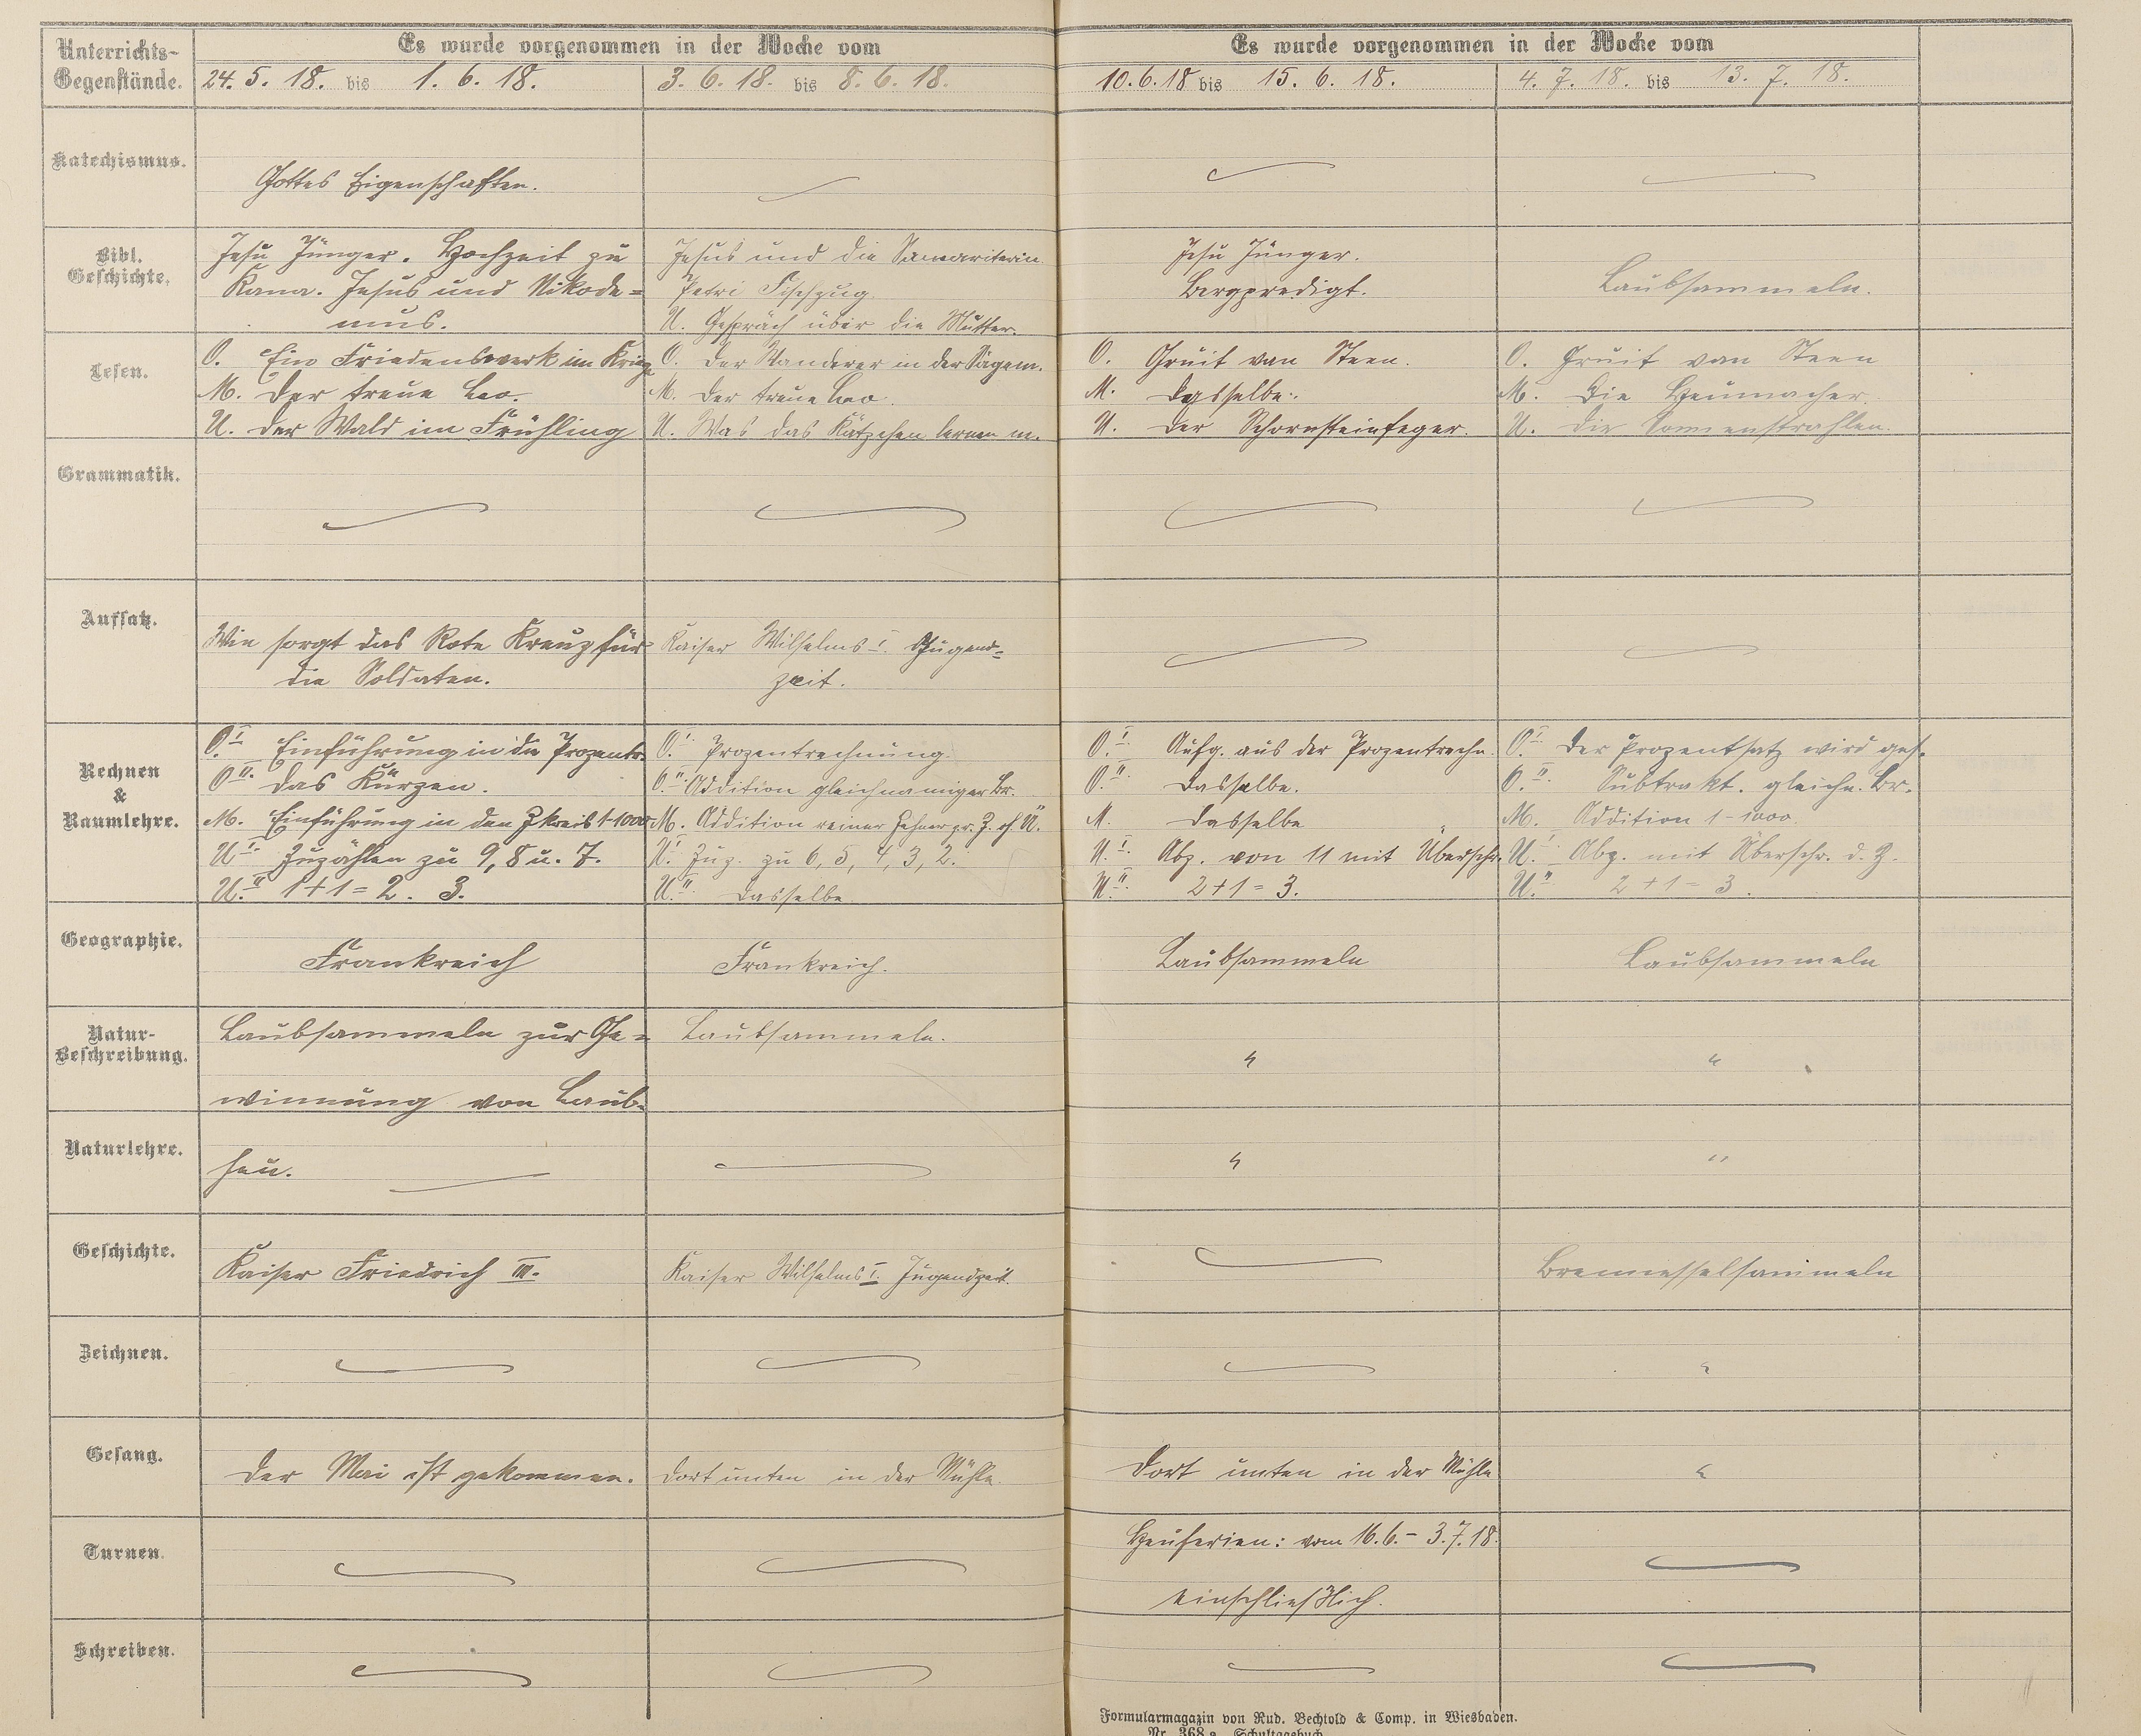 Unterrichts-
Gegenstände.
Es wurde vorgenommen in der Woche vom
24. 5. 18. bis 1. 6. 18.
3. 6. 18. bis 8. 6. 18.
Es wurde vorgenommen in der Woche vom
10. 6. 18 bis 15. 6. 18.
4. 7. 18. bis 13. 7. 18.
Katechismus.
Gottes Eigenschaften.
Bibl.
Geschichte.
Jesu Jünger. Hochzeit zu
Kana. Jesus und Nikode=
mus.
Jesus und die Samariterin.
Petri Fischzug.
U. Gespräch über die Mutter.
Jesu Jünger.
Bergpredigt.
Laubsammeln.
Lesen.
O. Ein Friedenswerk im Kriege
M. Der treue Leo.
U. Der Wald im Frühling
O. Der Wanderer in der Sägem.
M. Der treue Leo.
U. Was das Kätzchen lernen m.
O. Gruit van Steen.
M. Dasselbe.
U. Der Schornsteinfeger.
O. Gruit van Steen
M. Die Heumacher.
U. Die Sonnenstrahlen.
Grammatik.
Aufsatz.
Wie sorgt das Rote Kreuz für
die Soldaten.
Kaiser Wilhelms I. Jugend=
zeit.
Rechnen
&
Raumlehre.
O.I Einführung in die Prozentr.
O.II. Das Kürzen.
M. Einführung in den Zkreis 1-1000
U.I. Zuzählen zu 9, 8 u. 7.
U.II 1+1=2. 3.
O.I. Prozentrechnung.
O.II. Addition gleichnamiger Br.
M. Addition reiner Zehner zr. Z. oh Ü.
U.I. Zuz. zu 6, 5, 4, 3, 2.
U.II. Dasselbe
O.I. Aufg. aus der Prozentrechn.
O.II. Dasselbe.
M. Dasselbe
U.I. Abz. von 11 mit Überschr.
U.II. 2+1=3.
O.I. Der Prozentsatz wird ges.
O.II. Subtrakt. gleichn. Br.
M. Addition 1-1000.
U.I. Abz. mit Überschr. d. Z.
U.II. 2+1=3.
Geographie.
Frankreich
Frankreich.
Laubsammeln
Laubsammeln
Natur-
Beschreibung.
Laubsammeln zur Ge=
winnung von Laub-
Laubsammeln.
"
"
Naturlehre.
heu.
"
"
Geschichte.
Kaiser Friedrich III.
Kaiser Wilhelms I. Jugendzeit.
Brennesselsammeln
Zeichnen.
"
Gesang.
Der Mai ist gekommen.
Dort unten in der Mühle.
Dort unten in der Mühle
"
Turnen.
Heuferien: vom 16.6.- 3.7.18.
einschließlich.
Schreiben.
Formularmagazin von Rud. Bechtold & Comp. in Wiesbaden.
Nr. 368a Schultagebuch